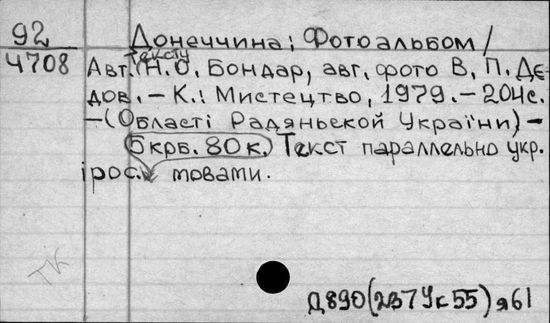 92
4708
Донеччина; Фотоальбом /
Авт. тексту Н. О. Бондар, авт. фото В. П. Дє-
дов. – К.: Мистецтво, 1979. – 204с.
– (Області Радянської України) –
6крб. 80к. Текст параллельно укр.
і рос. мовами.
ТК
Д890(2В7Ук55)я61